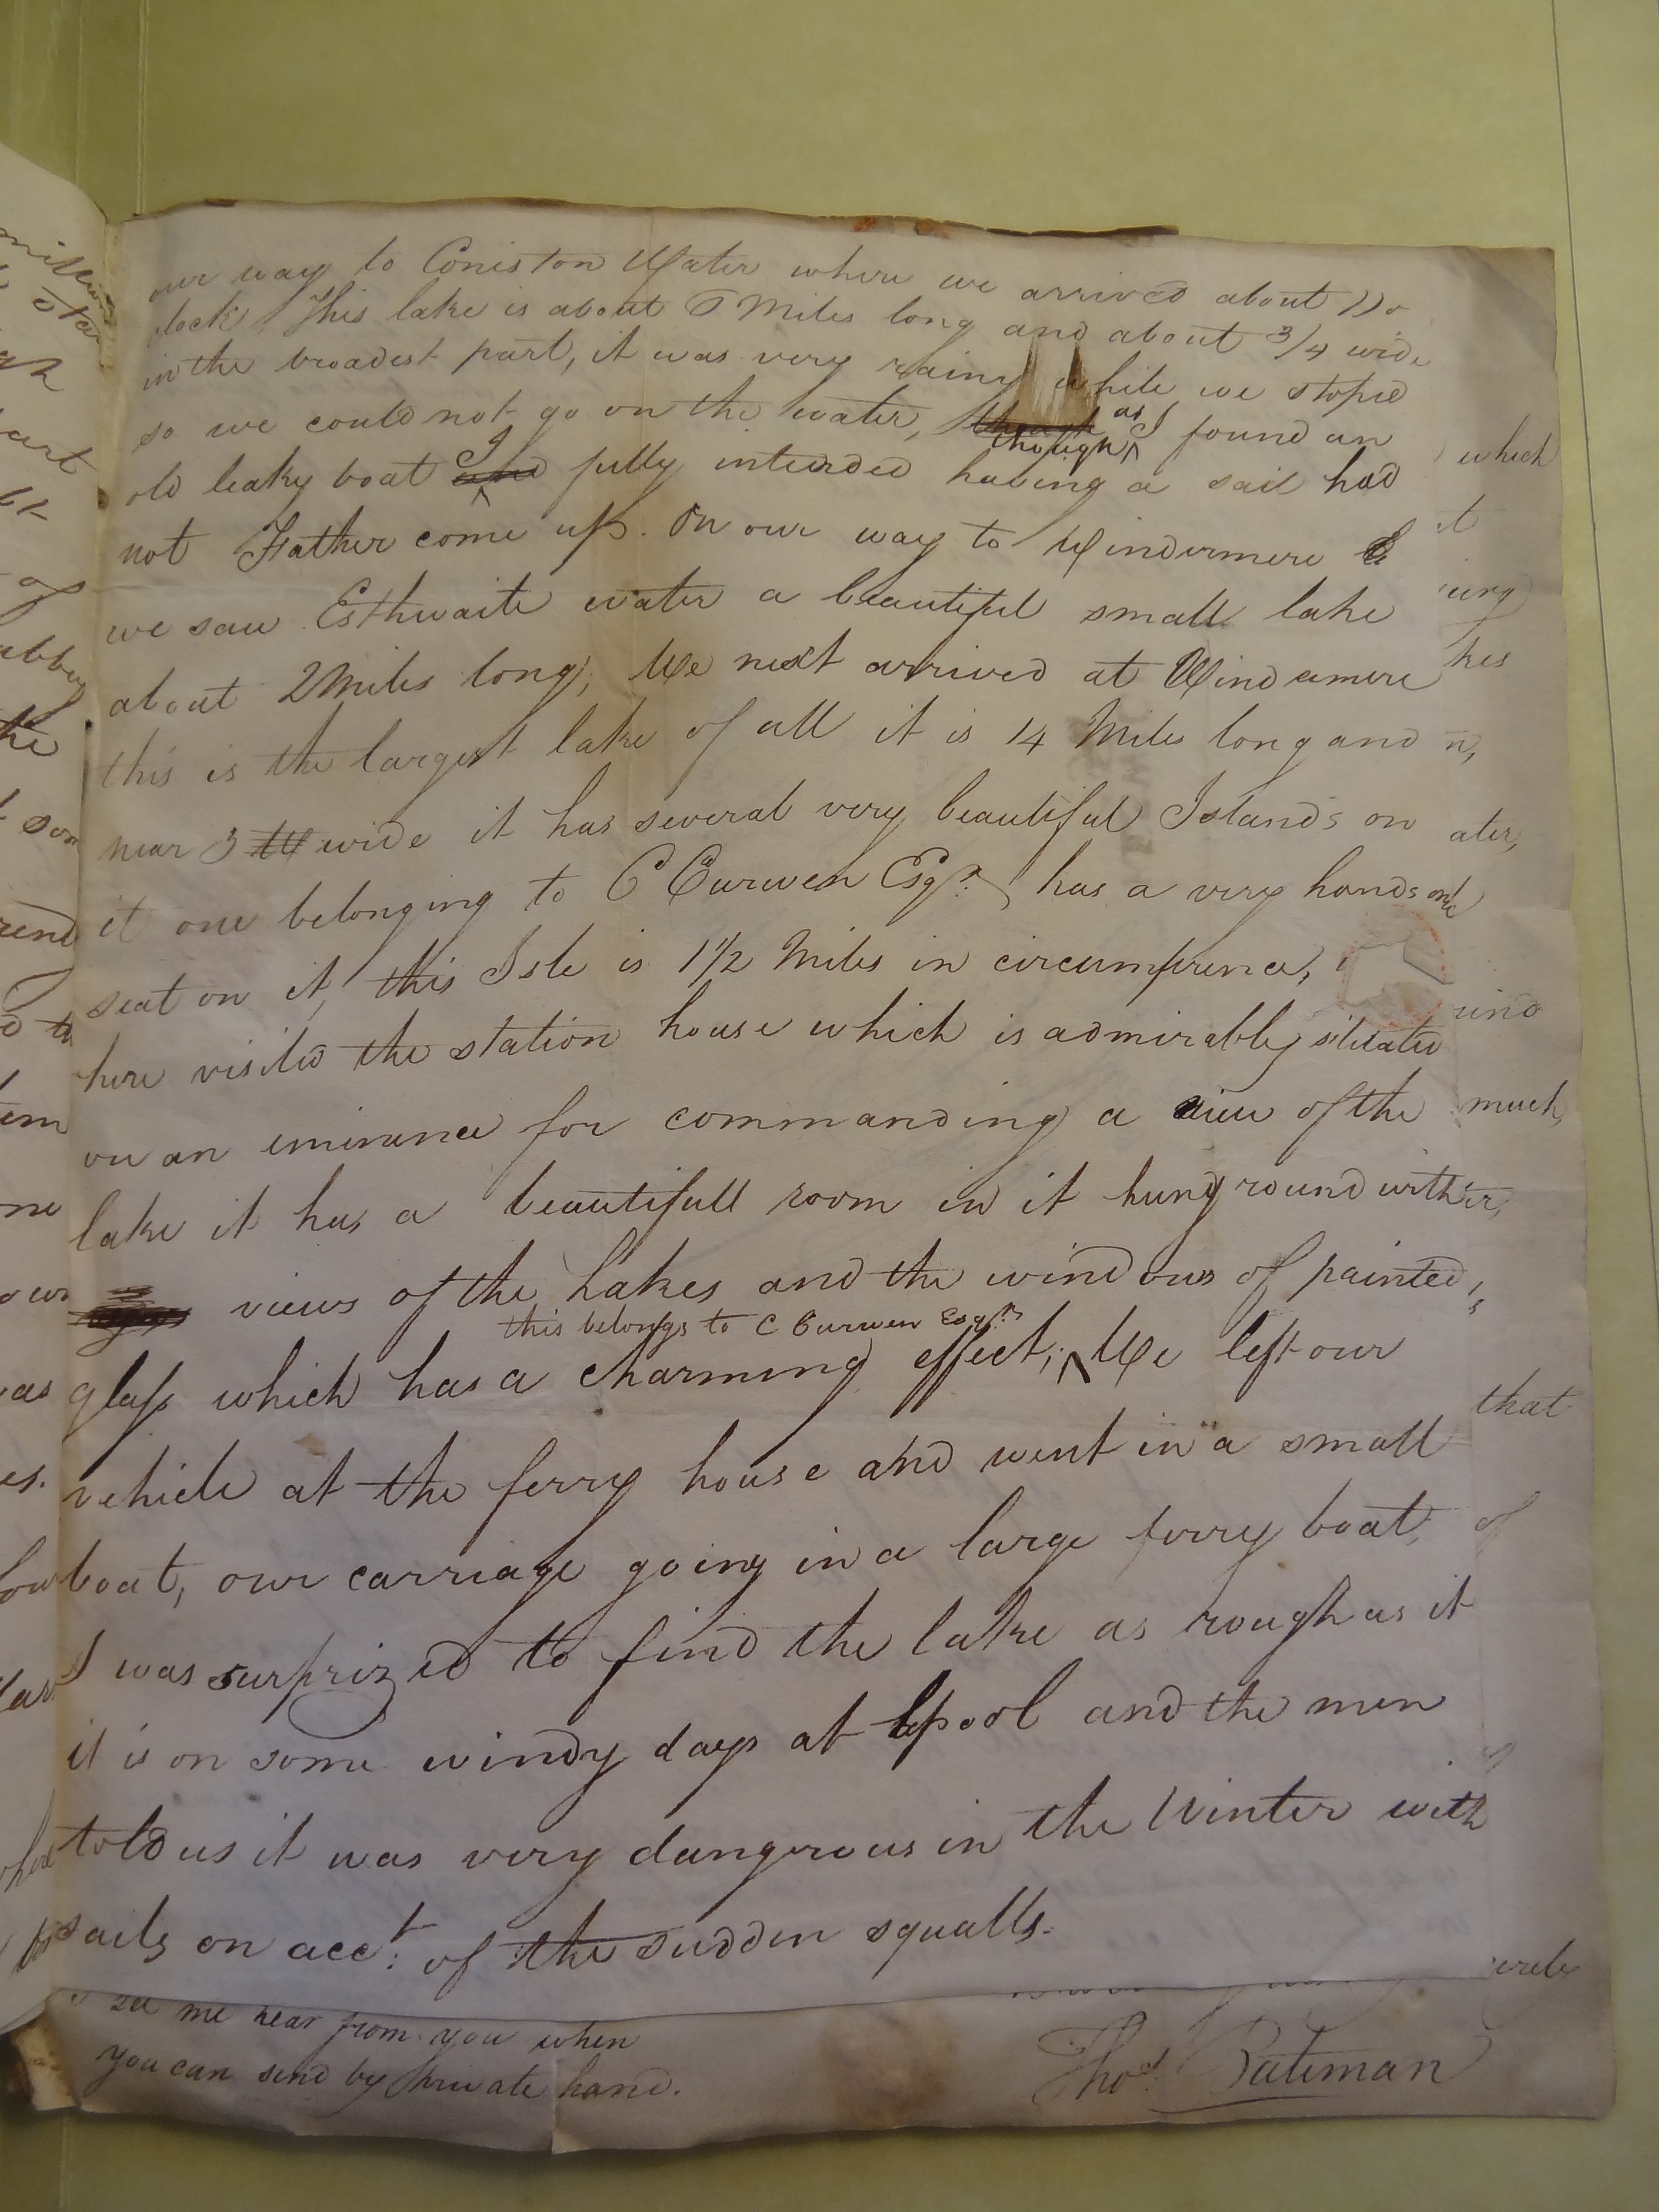 our way to Coniston Water where we arrived about 11 o
clock, This lake is about 6 Miles long and about 3/4 wide
in the broadest part, it was very rainy while we stoped
so we could not go on the water, though as I found an
old leaky boat I fully intended having a sail had
not Father come up. On our way to Windermere
we saw Esthwaite water a beautiful small lake
about 2 Miles long; We next arrived at Windemere
this is the largest lake of all it is 14 Miles long and
near 3 wide it has several very beautiful Islands on
it one belonging to C Curwen Esqr. has a very handsome
seat on it, this Isle is 1 1/2 Miles in circumference,
here visited the station house which is admirably situated
on an eminence for commanding a view of the
lake it has a beautifull room in it hung round with
views of the Lakes and the windows of painted
this belongs to C Curwen Esqr.
glass which has a charming effect; We left our
vehicle at the ferry house and went in a small
boat, our carriage going in a large ferry boat,
I was surprized to find the lake as rough as it
it is on some windy days at Lpool and the men
told us it was very dangerous in the Winter with
sails on acct. of the sudden squalls.
me hear from you when
you can send by private hand.
Thos. Bateman
which
it
much
that
of